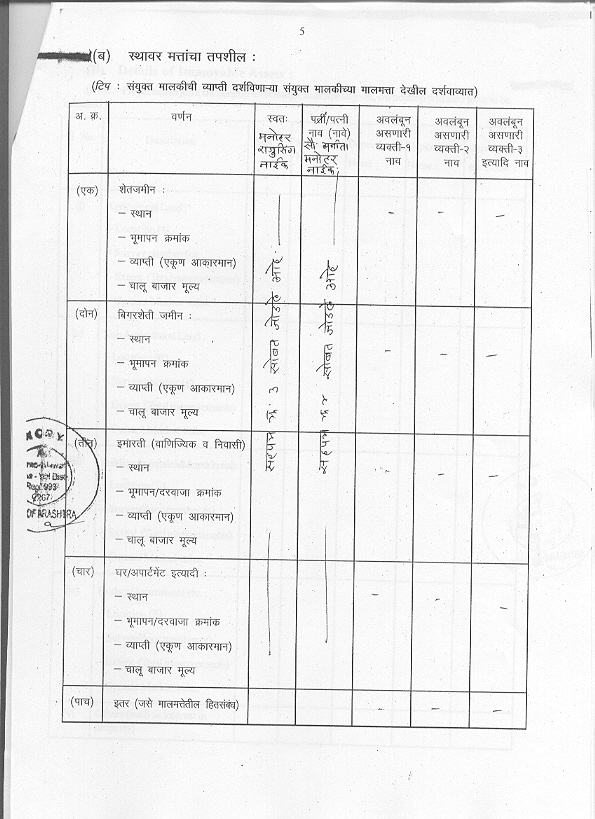 5
(ब) स्थावर मत्तांचा तपशील :
(टिप : संयुक्त मालकीची व्याप्ती दर्शविणाऱ्या संयुक्त मालकीच्या मालमत्ता देखील दर्शवाव्यात)
अ. क्र. वर्णन स्वतः पत्नी/पत्नी अवलंबून अवलंबून अवलंबून
मनोहर नाव (नावे) असणारी असणारी असणारी
सौ. व्यक्ती-१ व्यक्ती-२ व्यक्ती-३
नाईक मनोहर नाव नाव इत्यादि नाव
नाईक
(एक) शेतजमीन :
– स्थान
– भूमापन क्रमांक
– व्याप्ती (एकूण आकारमान)
– चालू बाजार मूल्य
(दोन) बिगरशेती जमीन :
– स्थान
– भूमापन क्रमांक
– व्याप्ती (एकूण आकारमान)
– चालू बाजार मूल्य
(तीन) इमारती (वाणिज्यिक व निवासी)
– स्थान
– भूमापन/दरवाजा क्रमांक
– व्याप्ती (एकूण आकारमान)
– चालू बाजार मूल्य
(चार) घर/अपार्टमेंट इत्यादी :
– स्थान
– भूमापन/दरवाजा क्रमांक
– व्याप्ती (एकूण आकारमान)
– चालू बाजार मूल्य
(पाच) इतर (जसे मालमत्तेतील हितसंबंध)
सहपत्र क्र. ३ सोबत जोडले आहे.
सहपत्र क्र. ४ सोबत जोडले आहे